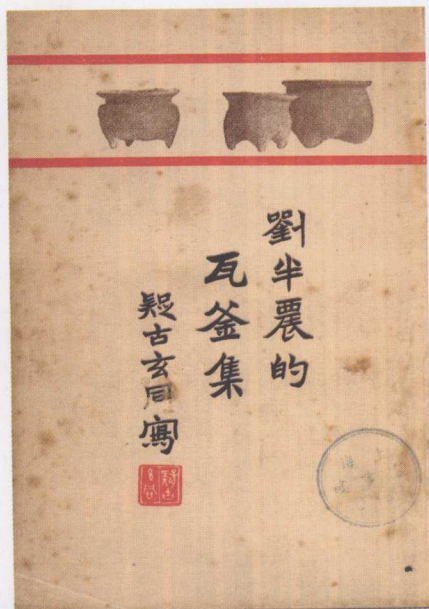 劉半農的
瓦釜集
疑古玄同寫